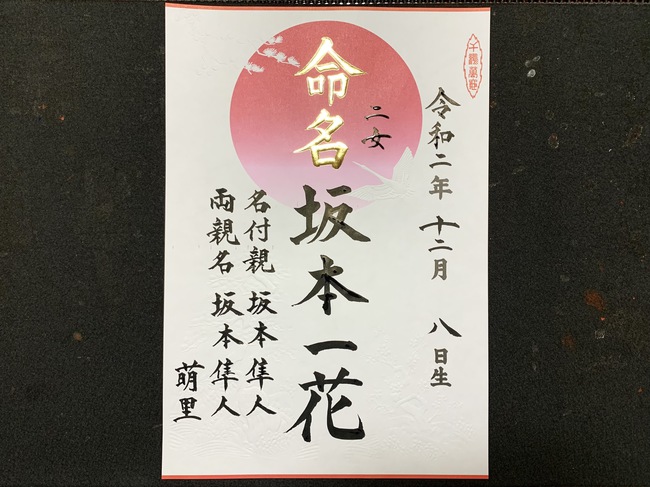 令和二年 十二月 八日生
二女
命名 坂本一花
名付親 坂本隼人
両親名 坂本隼人
萌里